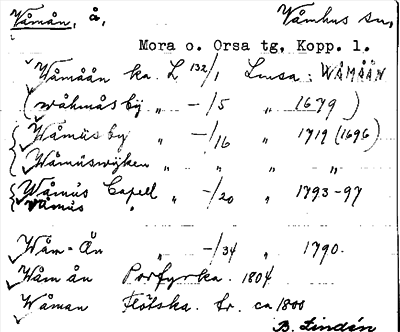 Våmån, å, Våmhus sn,
Mora o. Orsa tg, Kopp. l.
Wåmåån ka. L 132/1 Lmsa: WÅMÅÅN
(wåhmås by „ -/5 „ 1679)
Wåmüs by „ -/16 „ 1719 (1696)
Wåmüswijken „ „ „ „
Wåmüs Capell „ -/20 „ 1793-97
Våmüs „
Wåm-Ån „ -/34 „ 1790.
Wåm ån Porfyrka. 1804
Wåman Flötska. tr. ca 1800
B. Lindén